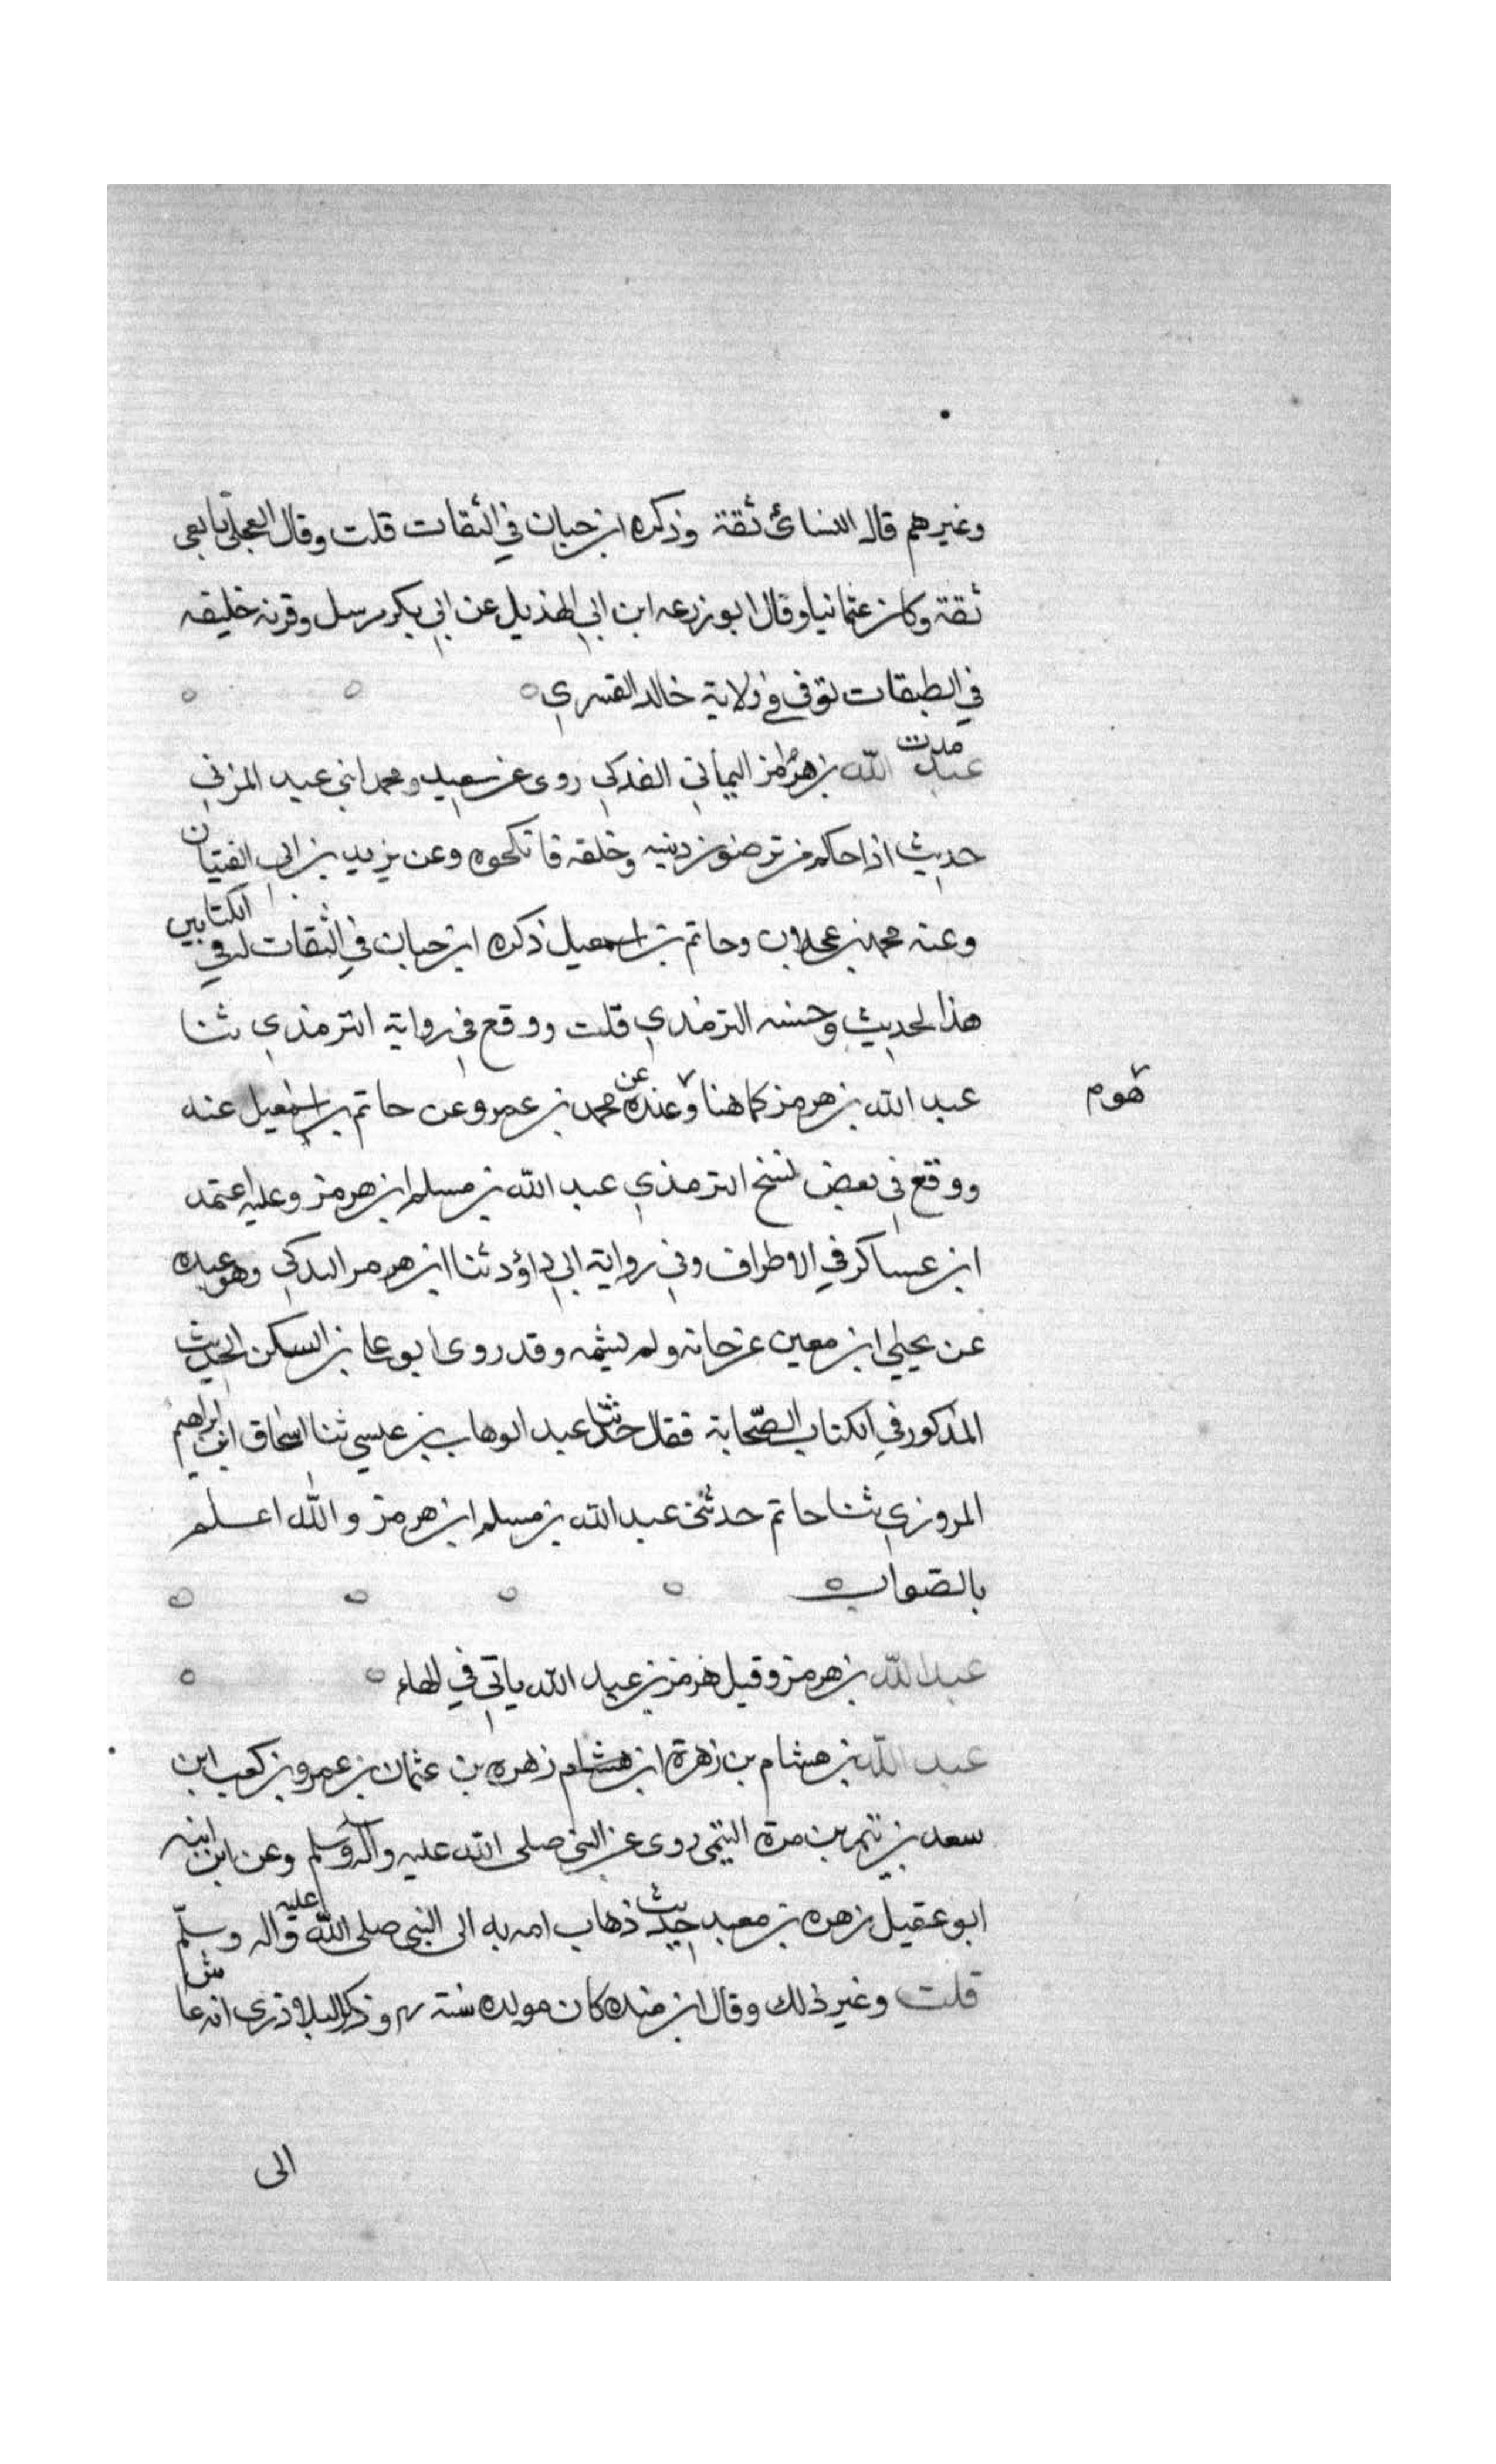 وغيرهم قال النسائي ثقة وذكره ابن حبان في الثقات قلت وقال العجلي تابعي
ثقة وكان عثمانيا وقال ابو زرعه ابن ابي الهذيل عن ابي بكر مرسل وقرنه خليفه
في الطبقات توفي في ولاية خالد القسري
مدت
عبد الله بن هرمز اليماني الفدكي روى عن سعيد ومحمد ابني عبيد المزني
حديث اذا جاكم من ترضون دينه وخلقه فانكحوه وعن يزيد بن ابي الفتيان
وعنه محمد بن عجلان وحاتم بن اسمعيل ذكره ابن حبان في الثقات له في الكتابين
هذا الحديث وحسنه الترمذي قلت ووقع في رواية الترمذي ثنا
عبد الله بن هرمز كما هنا وعنده عن محمد بن عمرو عن حاتم بن اسمعيل عنه
ووقع في بعض نسخ الترمذي عبد الله بن مسلم ابن هرمز وعليه اعتمد
ابن عساكر في الاطراف وفي رواية ابي داؤد ثنا ابن هرمر الدكي وهو عبده
عن يحيى ابن معين عن حاتم ولم يسمه وقد روى ابو علي بن السكن الحديث
المذكور في الكتاب الصحابة فقال حدثنا عبد الوهاب بن عيسى ثنا اسحاق ابن ابراهيم
المروزي ثنا حاتم حدثني عبد الله بن مسلم ابن هرمز والله اعلم
بالصواب
عبد الله بن هرمز وقيل هرمز بن عبد الله ياتي في الهاء
عبد الله بن هشام بن زهرة ابن هشام زهره بن عثمان بن عمرو بن كعب ابن
سعد بن تيم بن مرة التيمي روى عن النبي صلى الله عليه وآله وسلم وعن ابن ابنه
ابو عقيل زهره بن معبد حديث ذهاب امه به الى النبي صلى الله عليه وآله وسلم
قلت وغير ذلك وقال ابن منده كان مولده سنة ٤ وذكر البلاذري انه عاش
الى